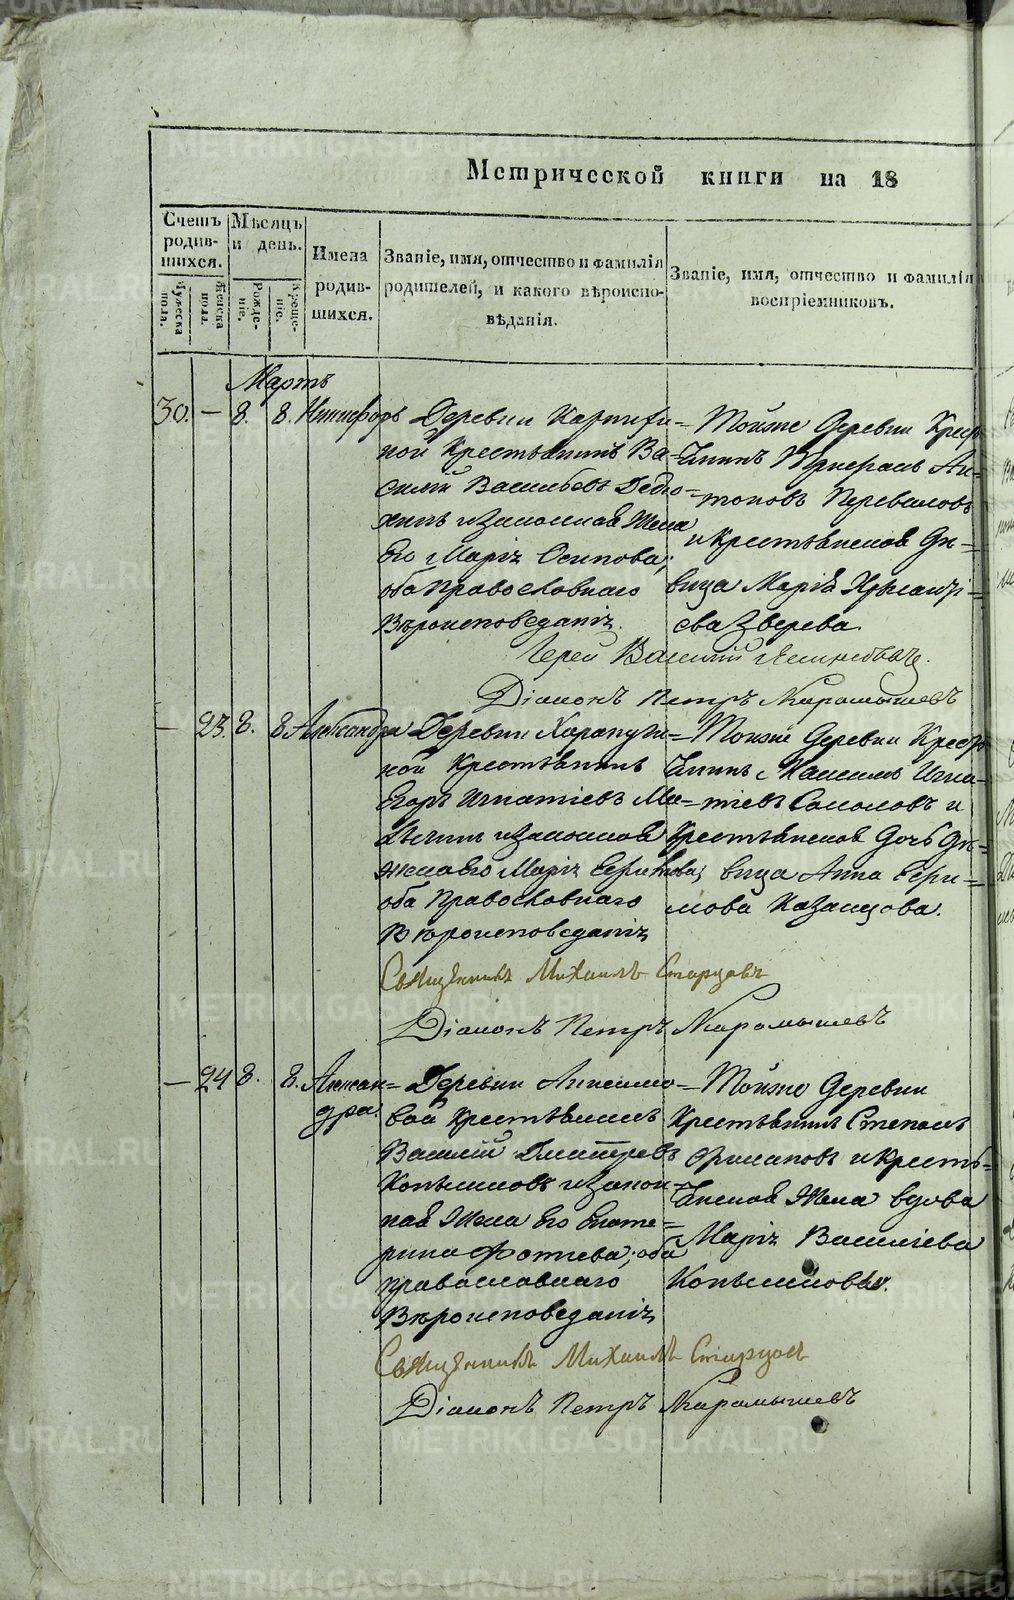 METRIKI.GASO-URAL.RU
Метрической книги на 18
Счетъ родив-шихся.
Мужеска пола.
Женска пола.
Мѣсяцъ и день.
Рожде-ніе.
Креще-ніе.
Имена родив-шихся.
Званіе, имя, отчество и фамилія
родителей, и какого вѣроиспо-
вѣданія.
Званіе, имя, отчество и фамилія
воспріемниковъ.
Мартъ
30. — 8. 8. Никифоръ
Деревни
ной Крестьянинъ Ва-
силій Васильевъ
и законная Жена
Его Марія Осипова;
оба Православнаго
Вѣроисповеданія.
Тойже Деревни Кресть-
янинъ Ан-
тоновъ Переваловъ
и Крестьянская Дѣ-
вица Марія
ева Зверева.
Іерей Василій
Діаконъ Петръ Карамышевъ
— 23. 8. 8. Александра
Деревни
ной Крестьянинъ
Егоръ Игнатіевъ
и законная
жена его Марія
оба Православнаго
Вѣроисповеданія
Тойже Деревни Кресть-
янинъ Максимъ Игна-
тіевъ Соколовъ и
Крестьянская Дочь Дѣ-
вица Анна
Казанцова.
Священникъ Михаилъ Старцовъ
Діаконъ Петръ Карамышевъ
— 24 8. 8. Алексан-
дра.
Деревни Анисимо-
вой Крестьянинъ
Василій Дмитревъ
и закон-
ная Жена Его Екате-
рина Фотіева; оба
православнаго
Вѣроисповеданія
Тойже Деревни
Крестьянинъ Степанъ
и Кресть-
янская Жена вдова
Марія Василіева
Священникъ Михаилъ Старцовъ
Діаконъ Петръ Карамышевъ